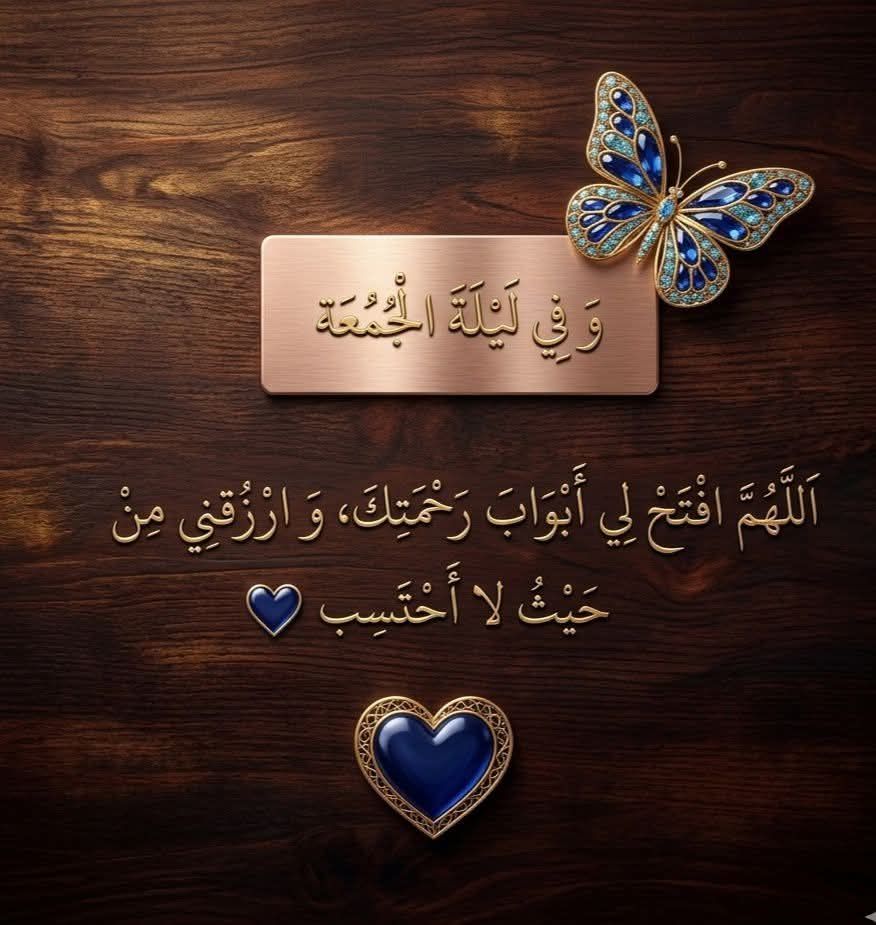 وَ فِي لَيْلَةَ الْجُمُعَة
اَللَّهُمَّ افْتَحْ لِي أَبْوَابَ رَحْمَتِكَ، وَ ارْزُقنِي مِنْ
حَيْثُ لا أَحْتَسِب 💙